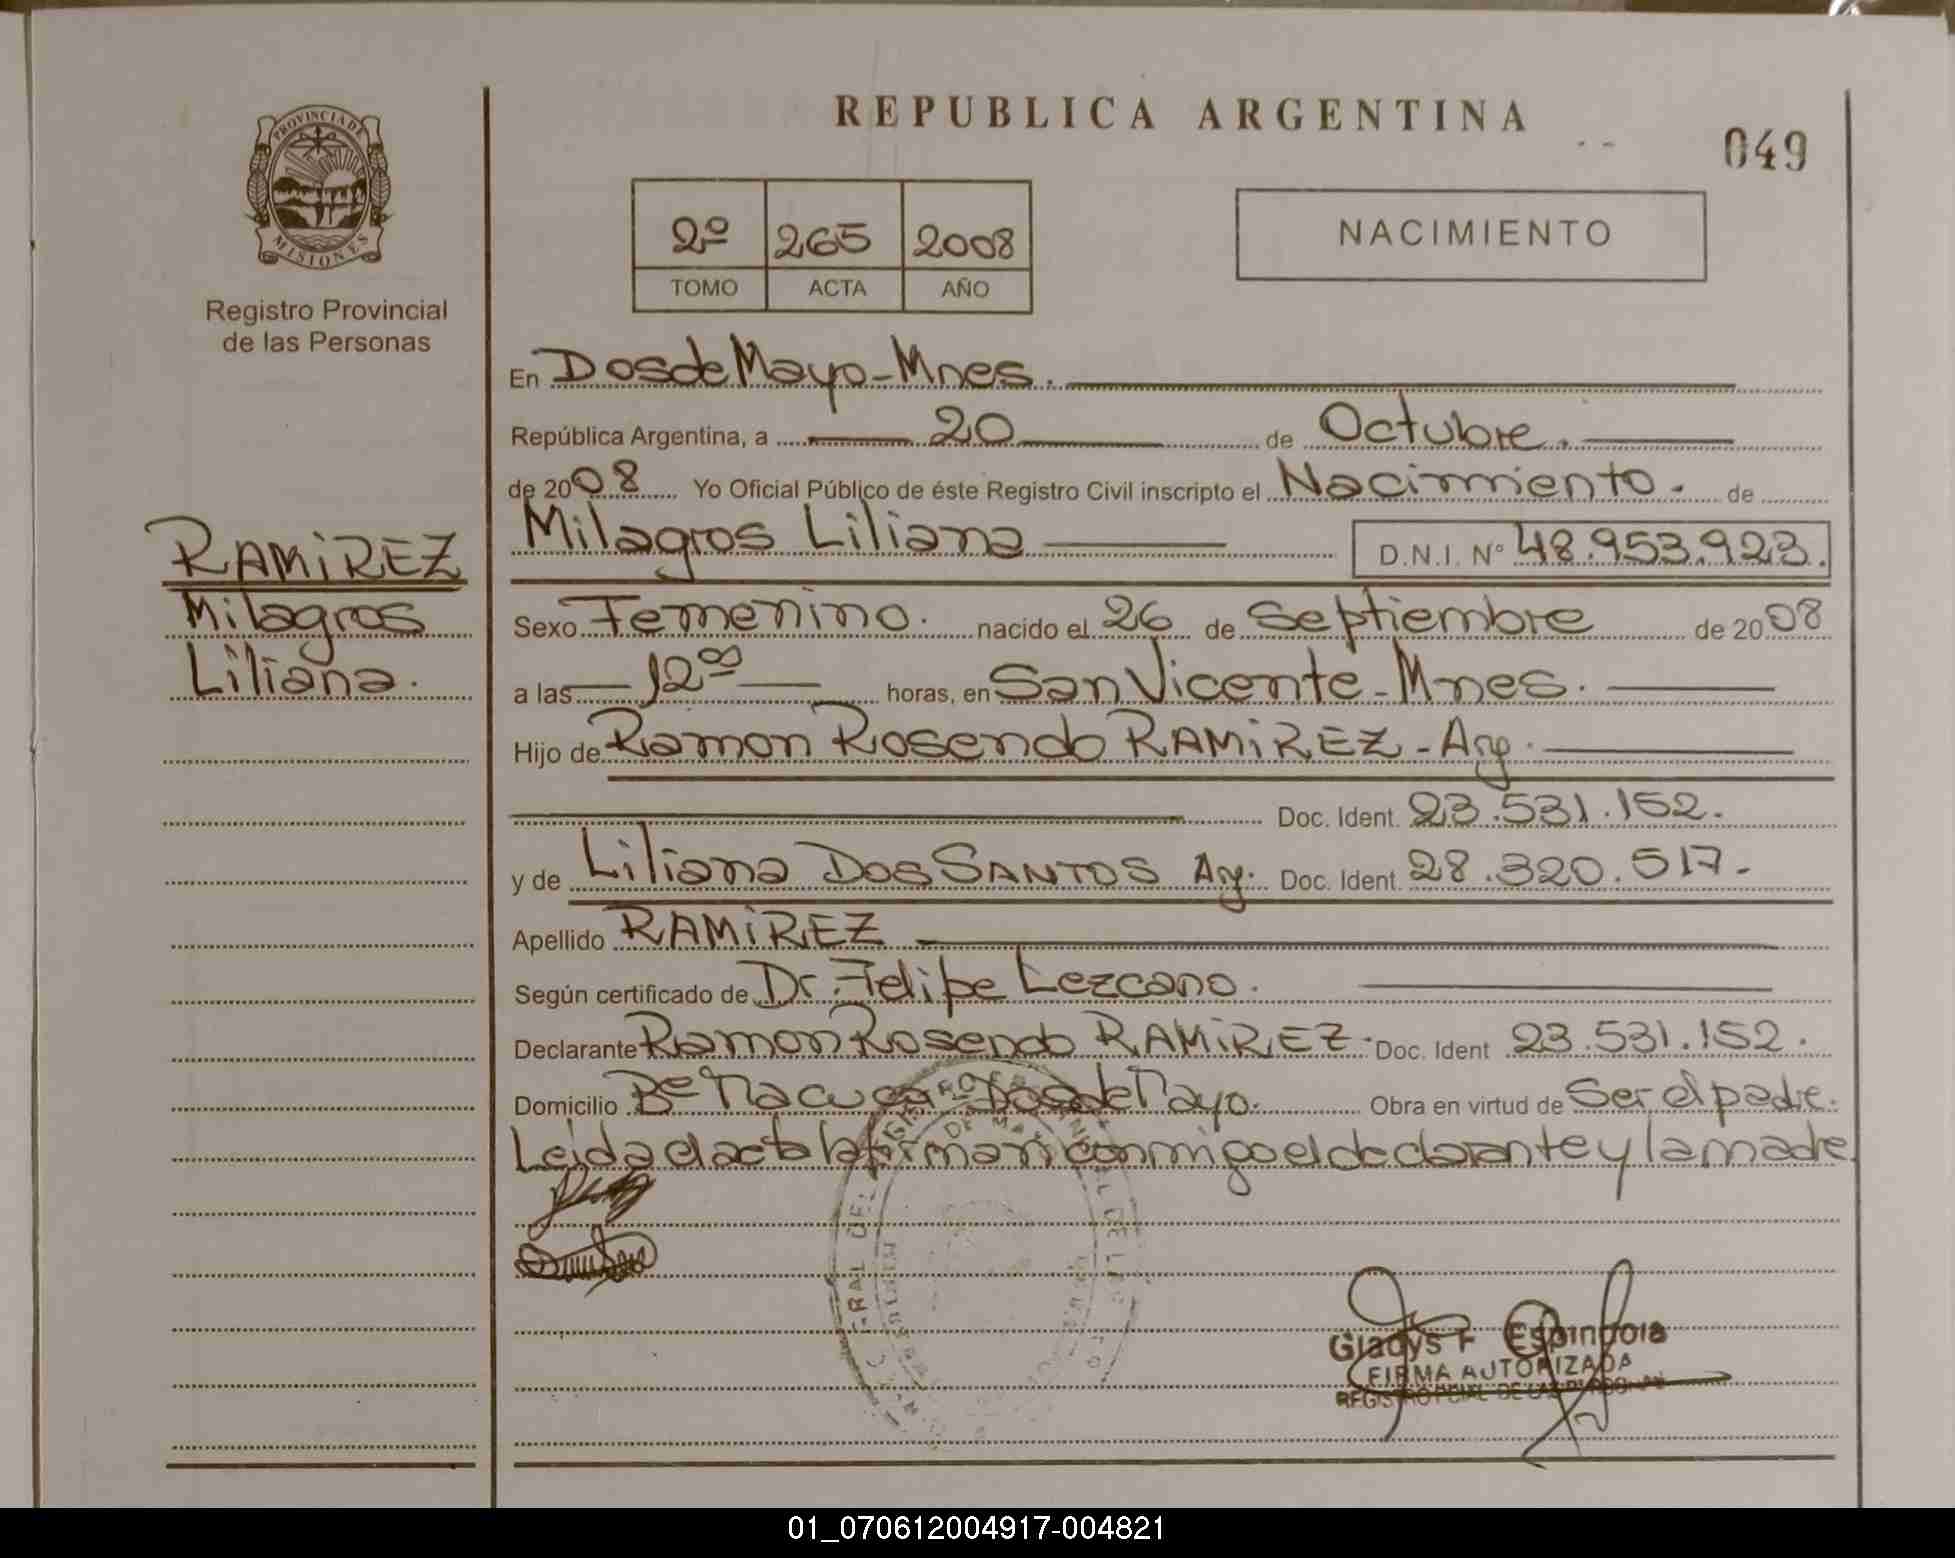 REPUBLICA ARGENTINA
049
PROVINCIA DE MISIONES
Registro Provincial
de las Personas
2º 265 2008
TOMO ACTA AÑO
NACIMIENTO
En Dos de Mayo - Mnes.
República Argentina, a 20 de Octubre.
de 2008 Yo Oficial Público de éste Registro Civil inscripto el Nacimiento. de
Milagros Liliana D.N.I. Nº 48.953.923.
RAMIREZ
Milagros
Liliana.
Sexo Femenino. nacido el 26 de Septiembre de 2008
a las 12 00 horas, en San Vicente - Mnes.
Hijo de Ramon Rosendo RAMIREZ - Arg.
Doc. Ident. 23.531.152.
y de Liliana DOS SANTOS Arg. Doc. Ident. 28.320.517.-
Apellido RAMIREZ
Según certificado de Dr. Felipe Lezcano.
Declarante Ramon Rosendo RAMIREZ. Doc. Ident 23.531.152.
Domicilio Bº Dos de Mayo. Obra en virtud de Ser el padre.
Leida el acta la firman conmigo el declarante y la madre.
Gladys F Espindola
FIRMA AUTORIZADA
REGISTRO PCIAL DE LAS PERSONAS
01_070612004917-004821